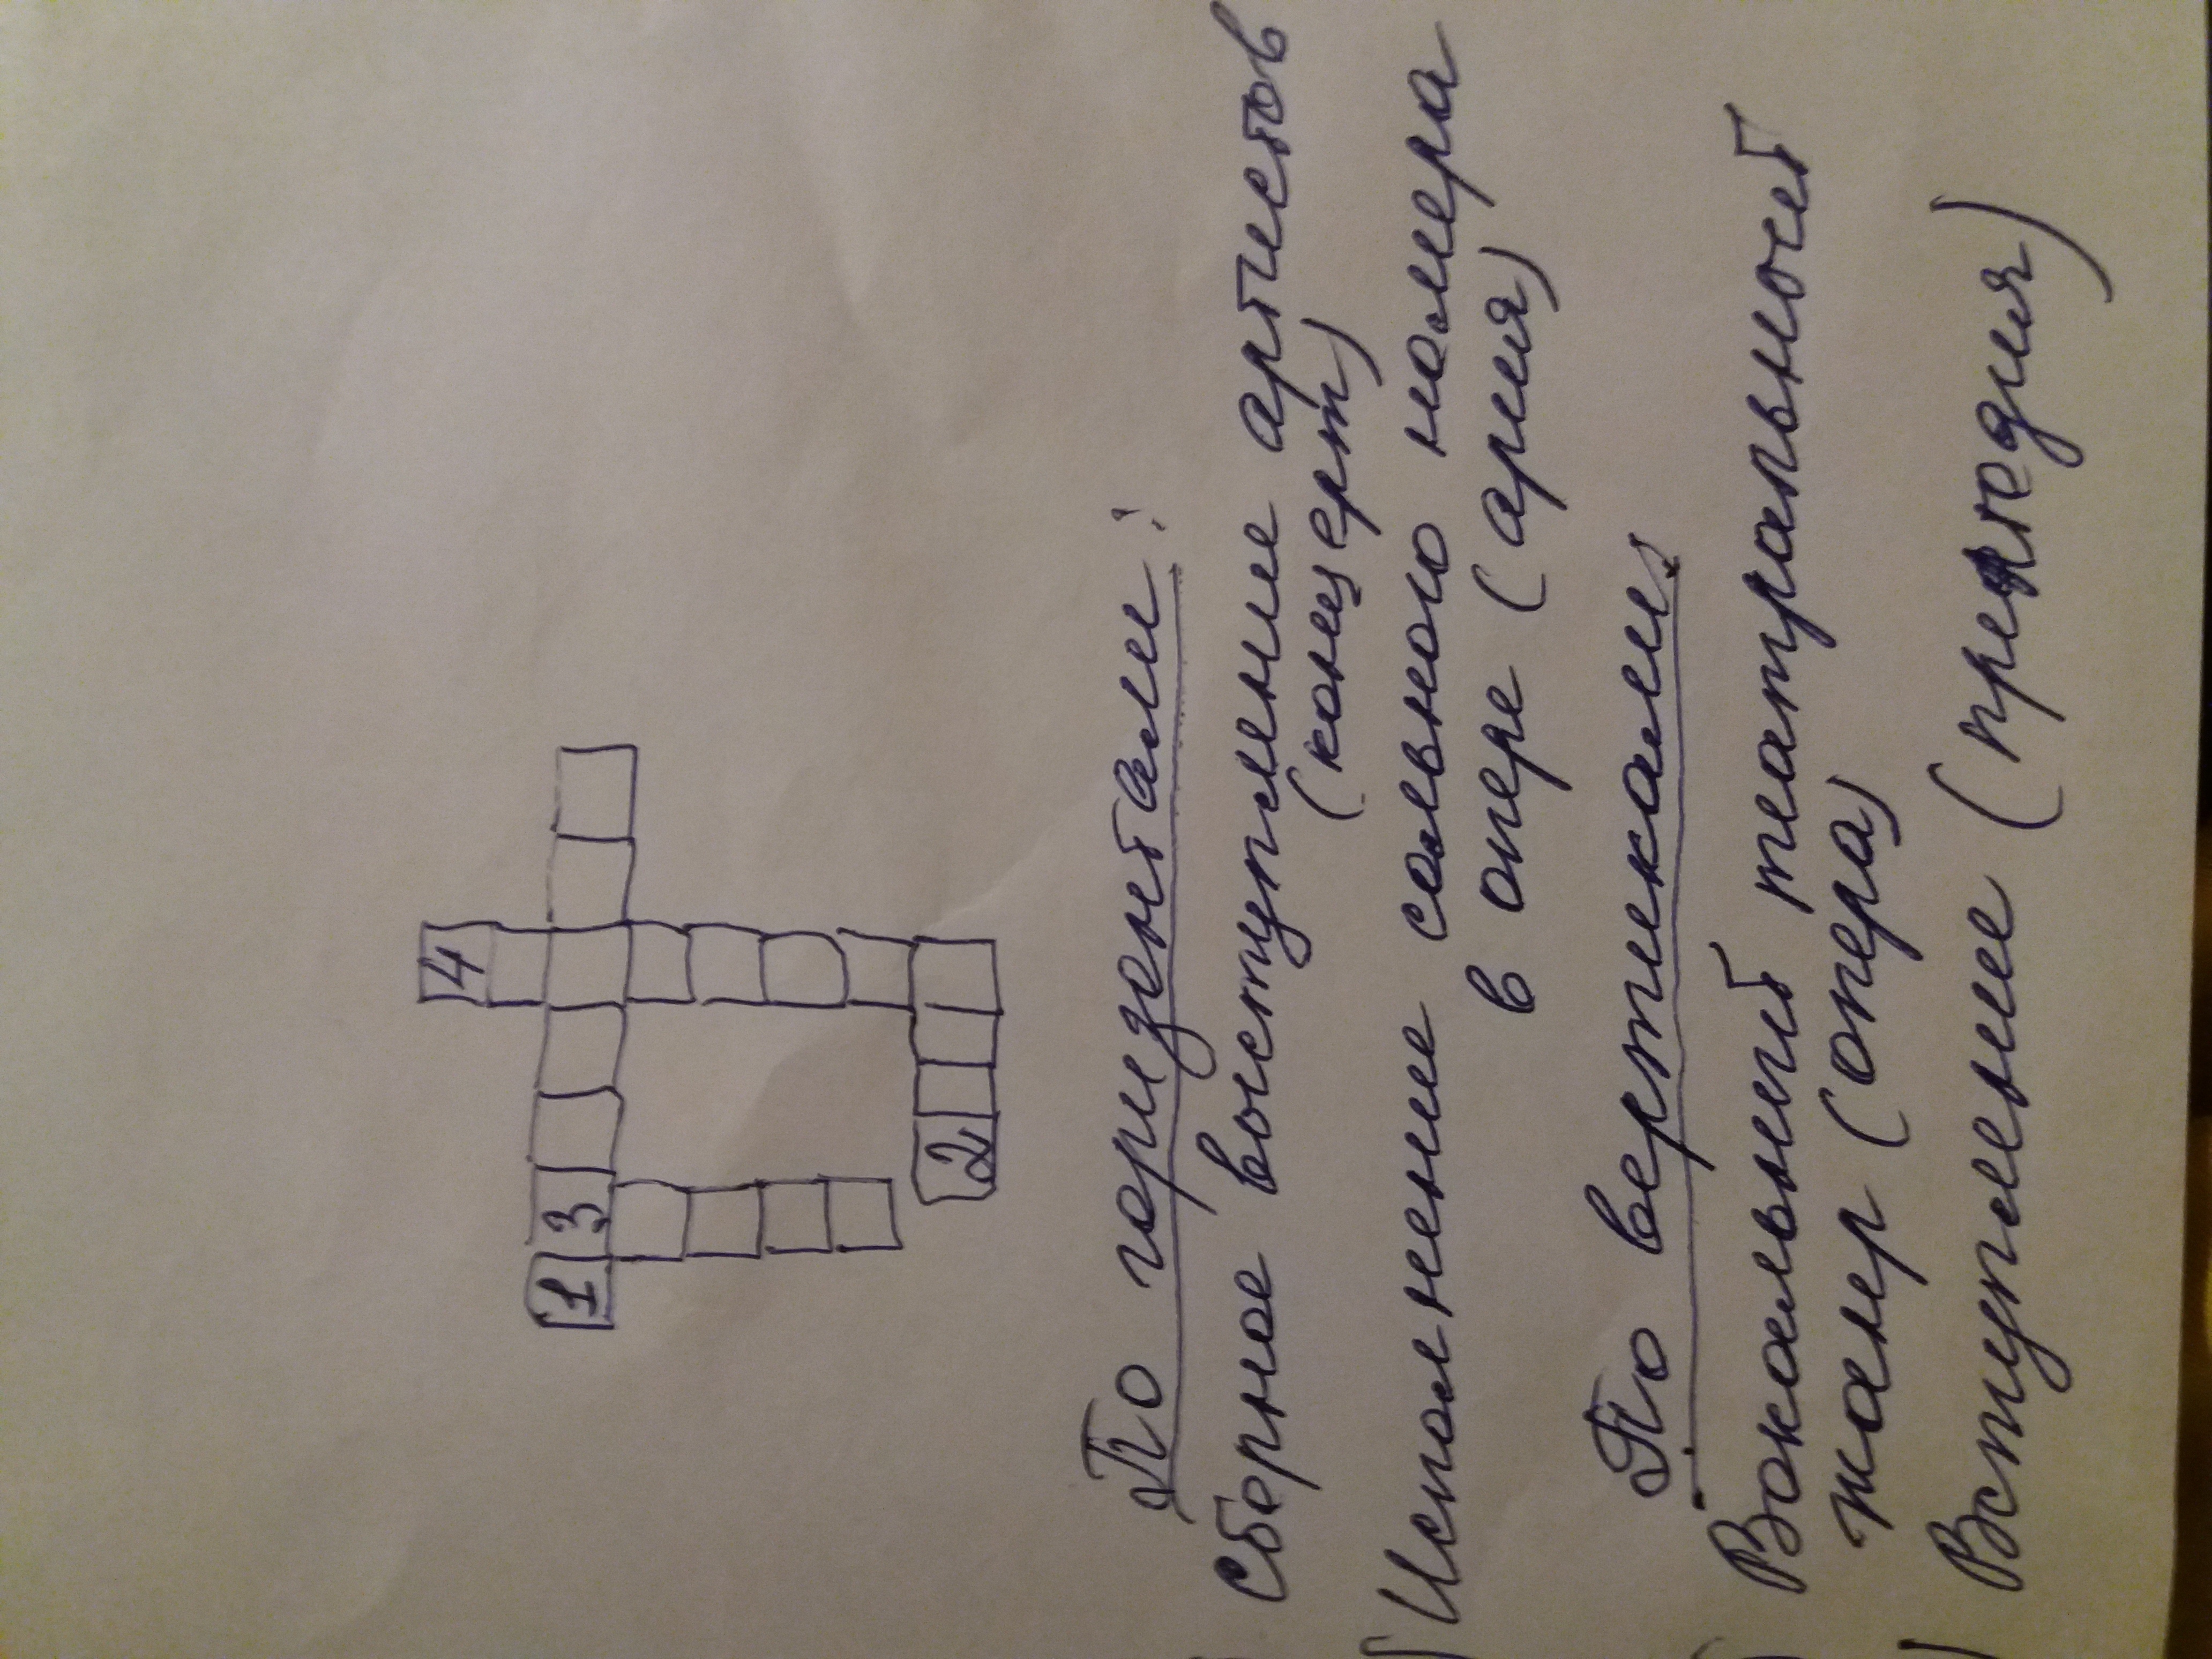 4
1 3
2
По горизонтали:
Сборное выступление артистов
(концерт)
) Исполнение сольного номера
в опере (ария)
По вертикали
) Вокальный театральный
жанр (опера)
) Вступление (прелюдия)